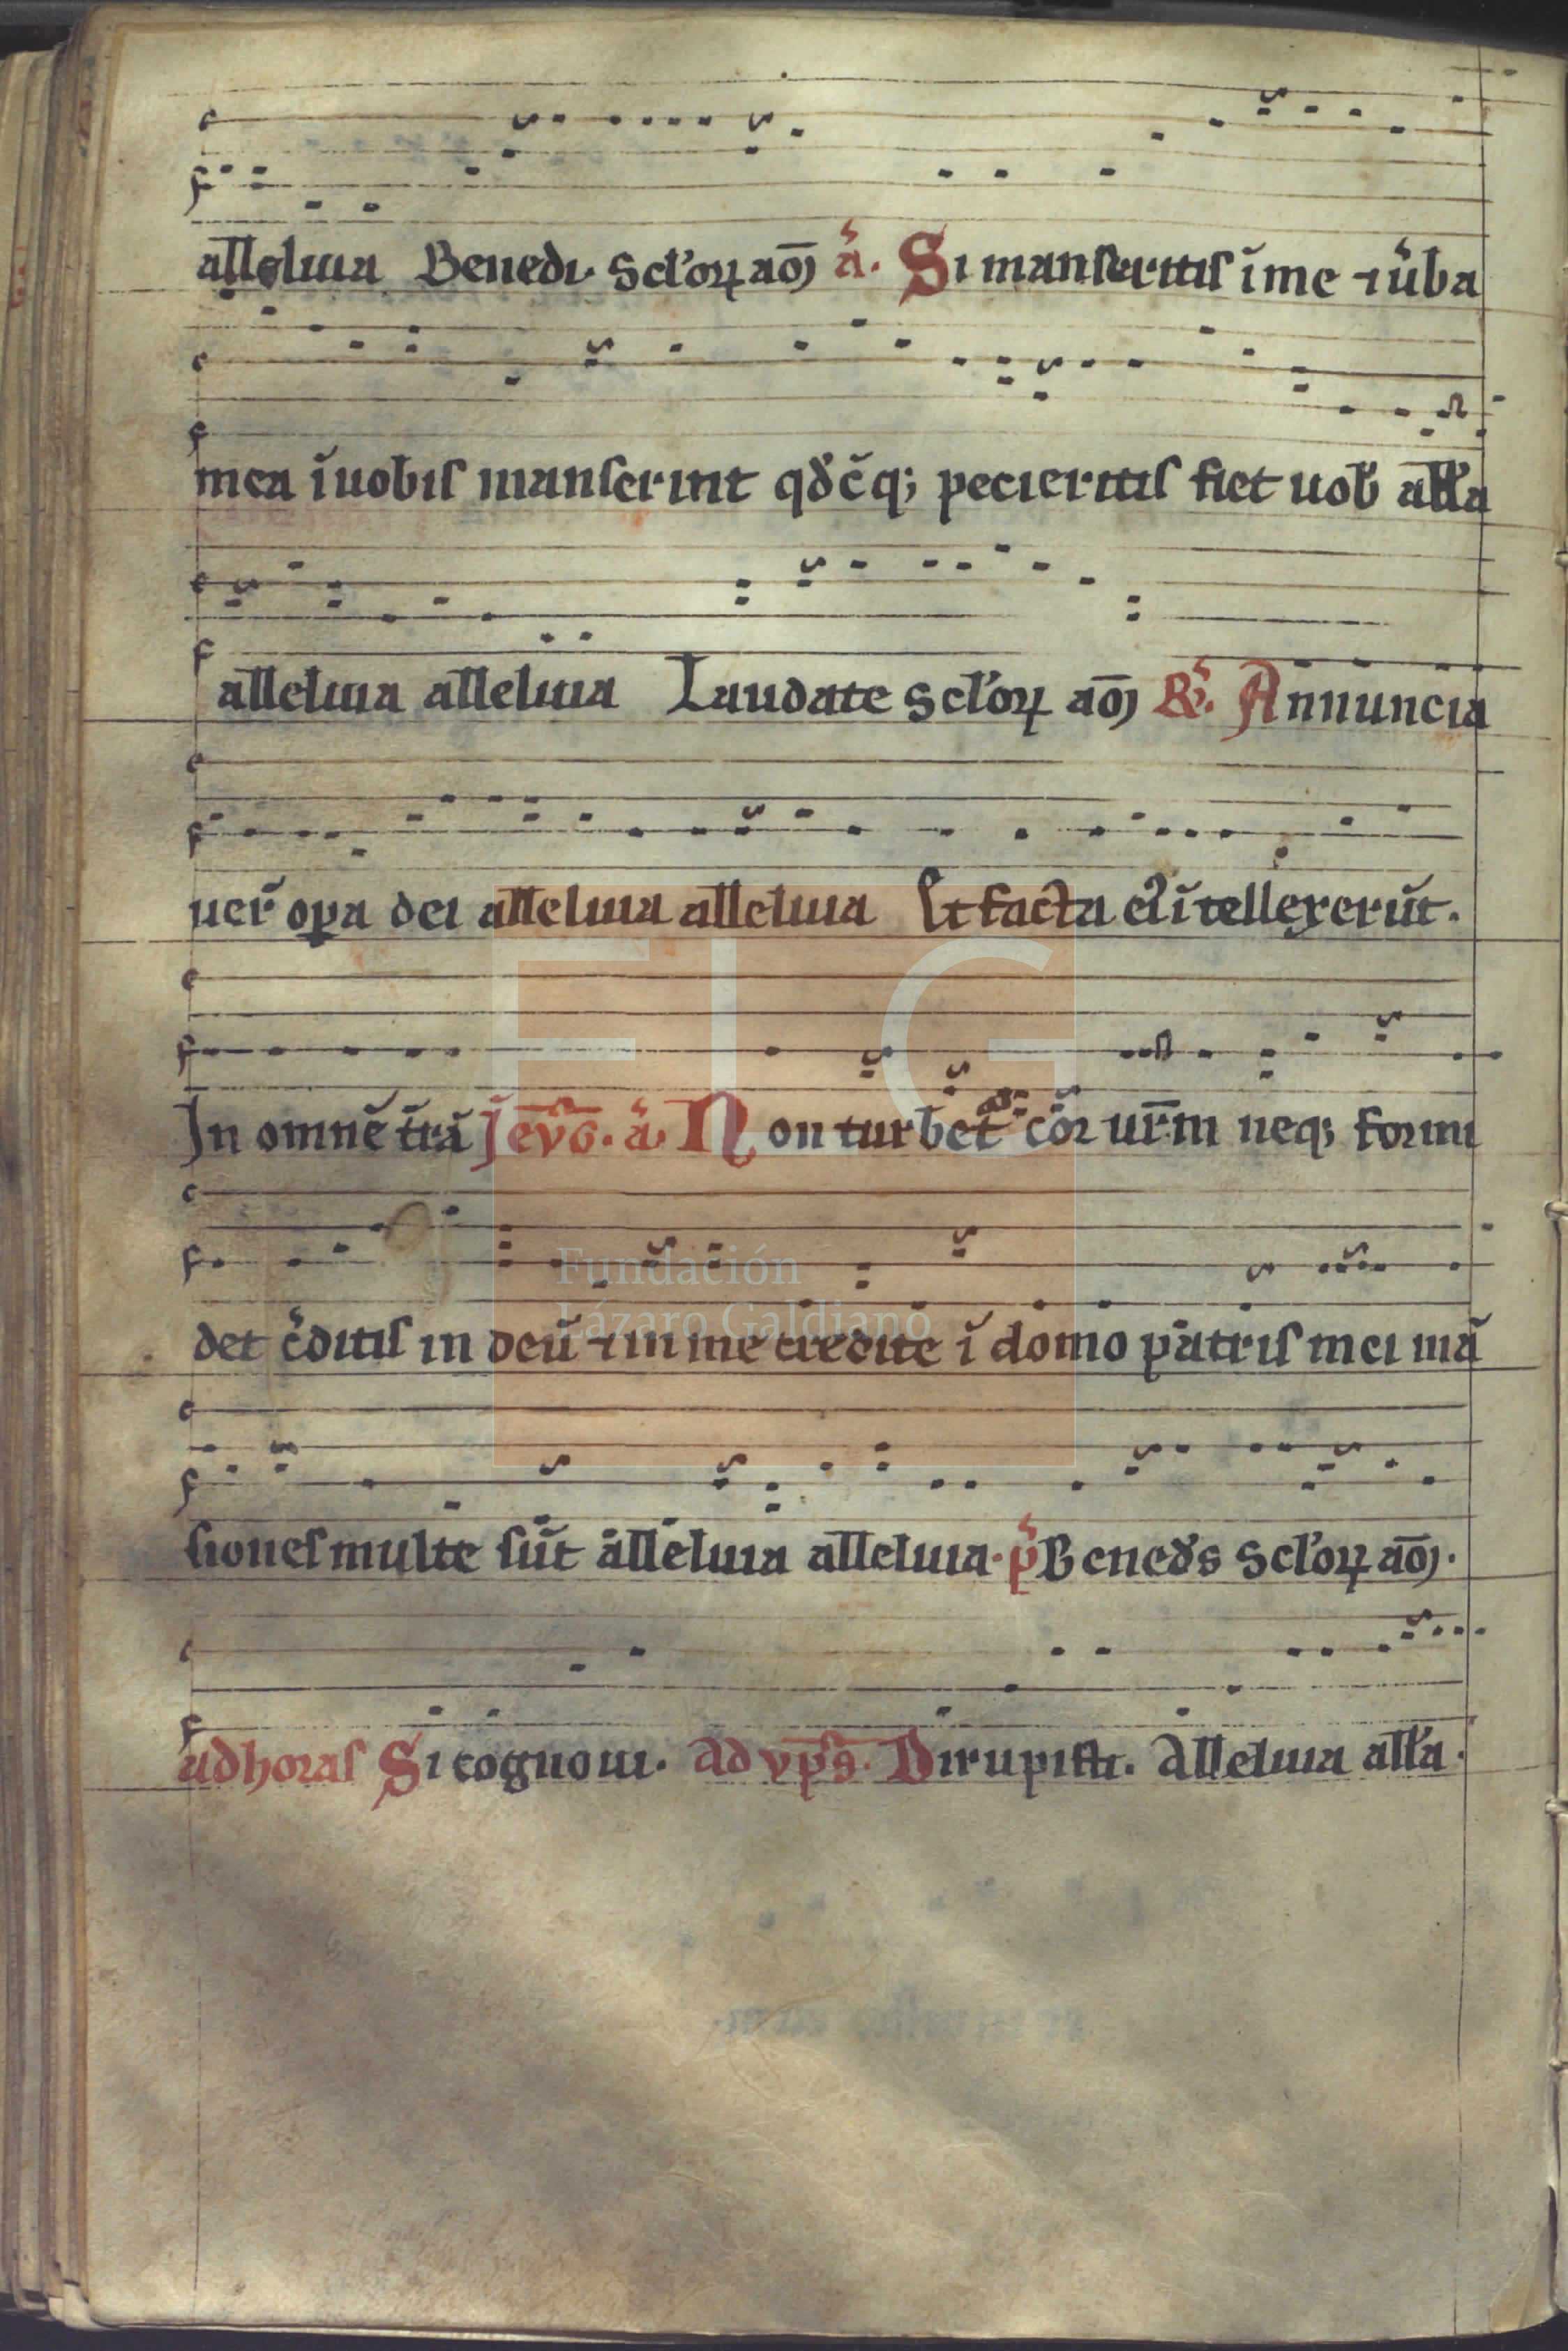 alleluia Benedi. sclˀoꝝ aō) ā. Si manseritis ī me ⁊ ūba
mea ī uobis manserint qd̄cq̄; pecieritis fiet uob̄ all̄a
alleluia alleluia Laudate sclˀoꝝ aō) R̄. Annuncia
uer̄ oꝑa dei alleluia alleluia Et facta eī ītellexerūt.
In omnē t̄rā J evō. ā. Non turbet cor ur̄m neq; formi
det c̄ditis in deū ⁊ in me credite ī domo patris mei mā
siones multe sūt alleluia alleluia. p̄ Bened̄s sclˀoꝝ aō).
ad horas Si cognoui. Ad vp̄s. Dirupisti. Alleluia all̄a.
FLG
Fundación
Lázaro Galdiano